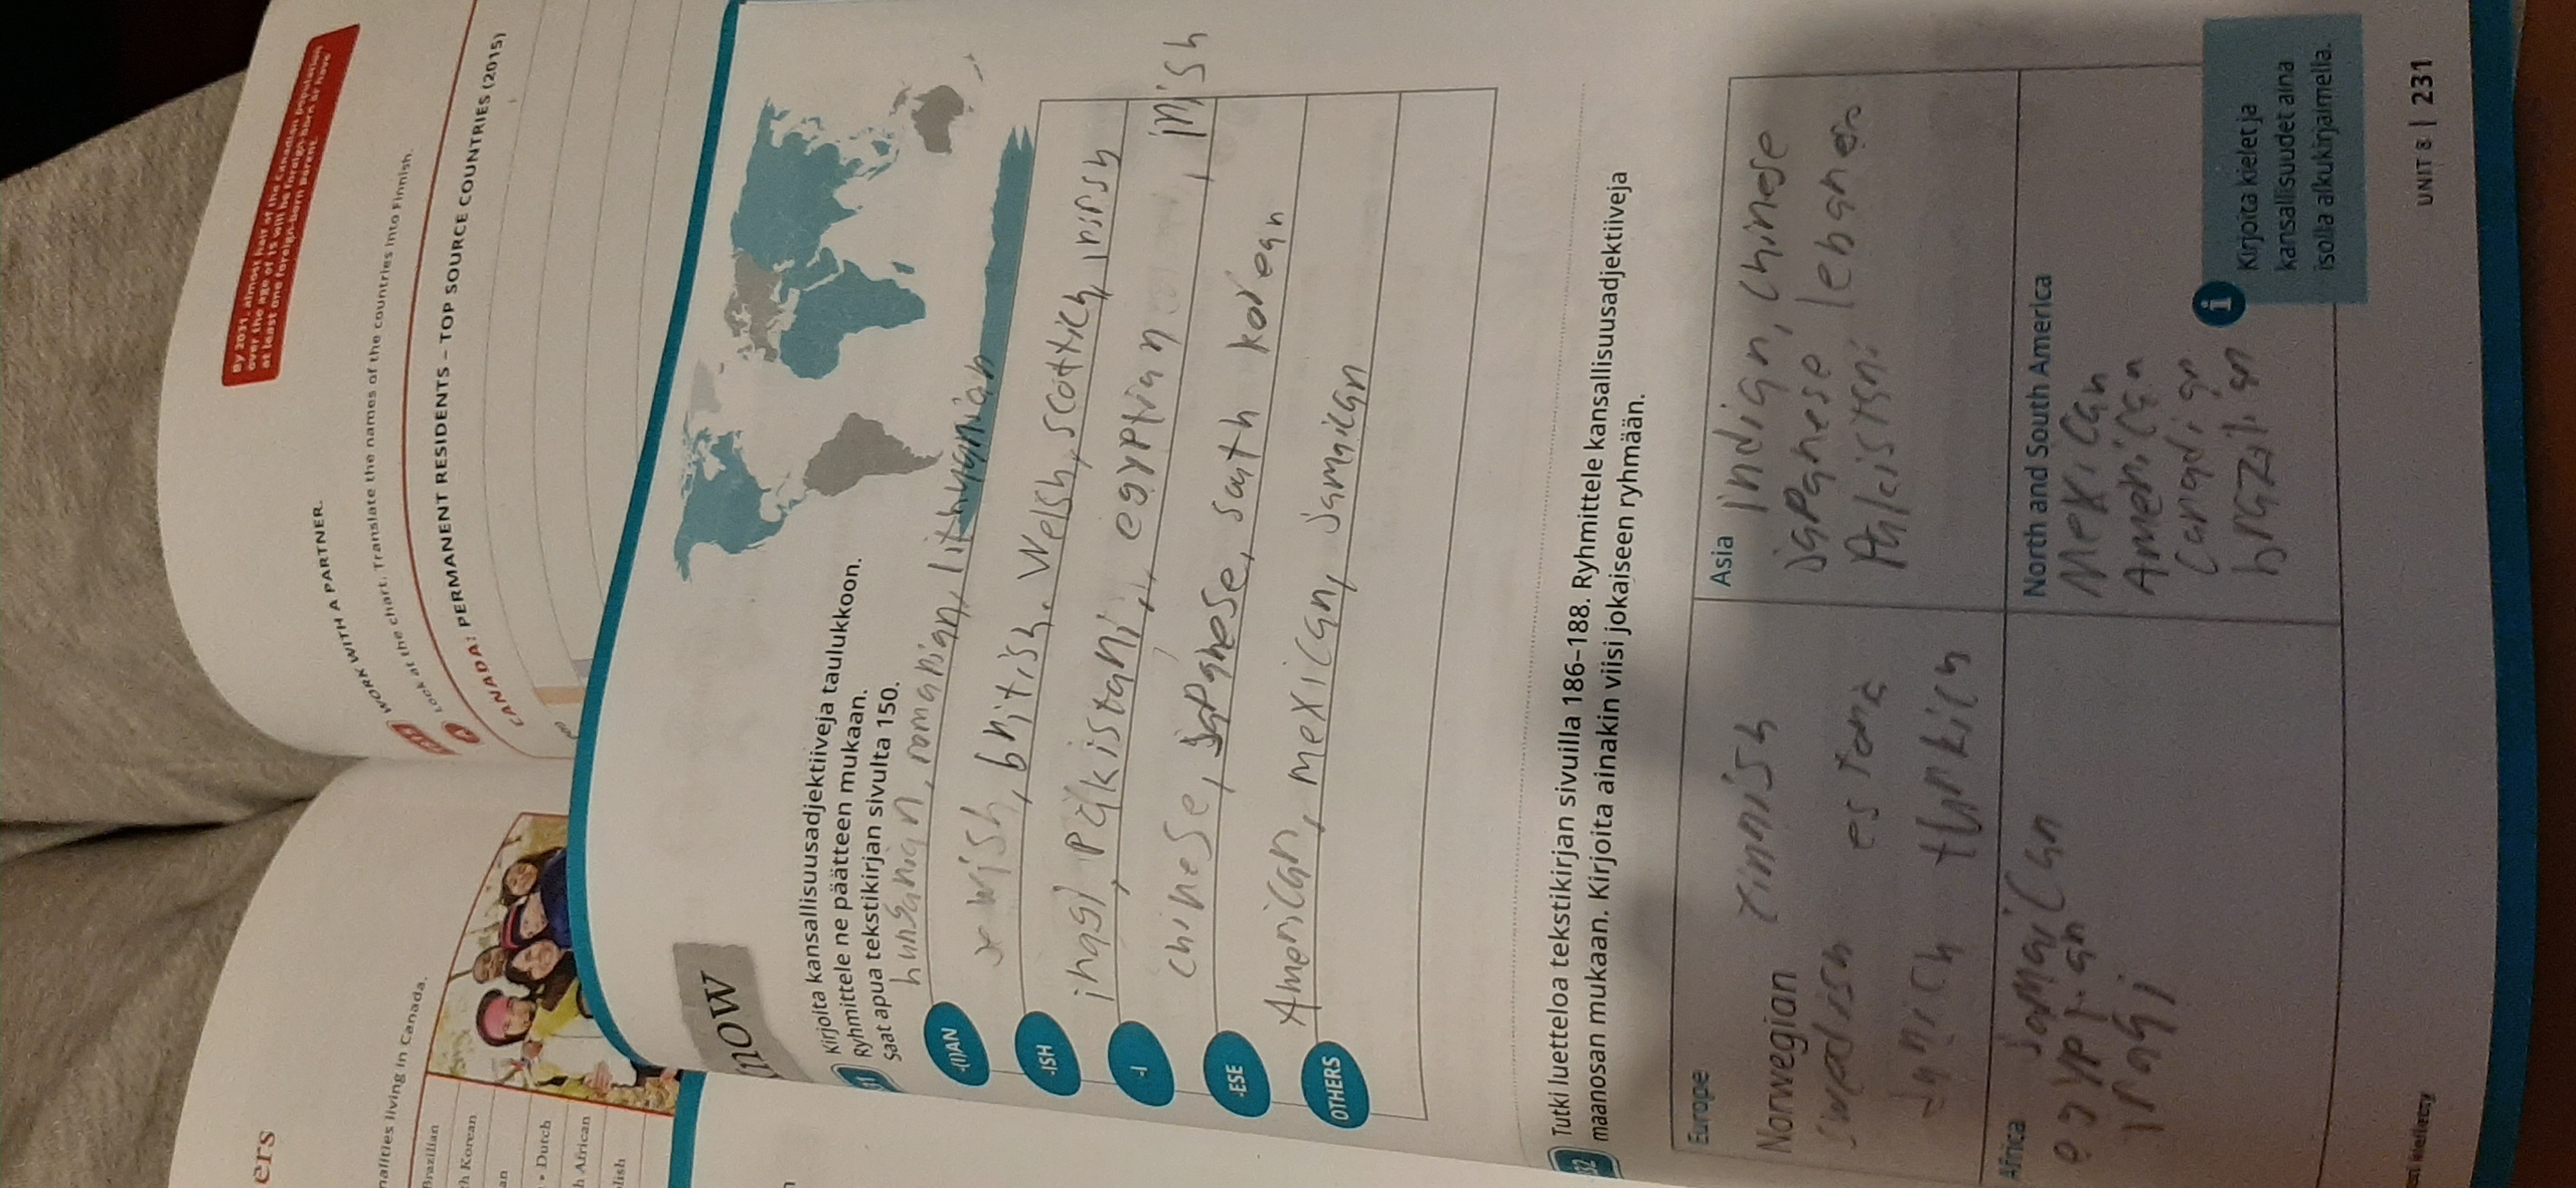 ers
nalities living in Canada.
Brazilian
th Korean
an
• Dutch
h African
lish
By 2031, almost half of the Canadian population
over the age of 15 will be foreign-born or have
at least one foreign-born parent.
WORK WITH A PARTNER.
Look at the chart. Translate the names of the countries into Finnish.
CANADA: PERMANENT RESIDENTS – TOP SOURCE COUNTRIES (2015)
now
Kirjoita kansallisuusadjektiiveja taulukkoon.
Ryhmittele ne päätteen mukaan.
Saat apua tekstikirjan sivulta 150.
-(I)AN
hungarian, romanian, lithyanian
-ISH
british, Welsh, scottich, irish
-I
iraqi, pakistani, egyptian
-ESE
chinese, japanese, south korean
OTHERS
American, mexican, jamaican
32 Tutki luetteloa tekstikirjan sivuilla 186–188. Ryhmittele kansallisuusadjektiiveja
maanosan mukaan. Kirjoita ainakin viisi jokaiseen ryhmään.
Europe
Norwegian finnish
swedish
danich turkich
Asia
indian, chinese
japanese
Pakistani
Africa
jamaican
egyptian
iraqi
North and South America
Mexican
American
Canadian
brazilian
i Kirjoita kielet ja
kansallisuudet aina
isolla alkukirjaimella.
UNIT 8 | 231